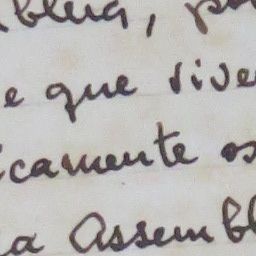 bleia, po
e que vive
icamente os
a Assembl